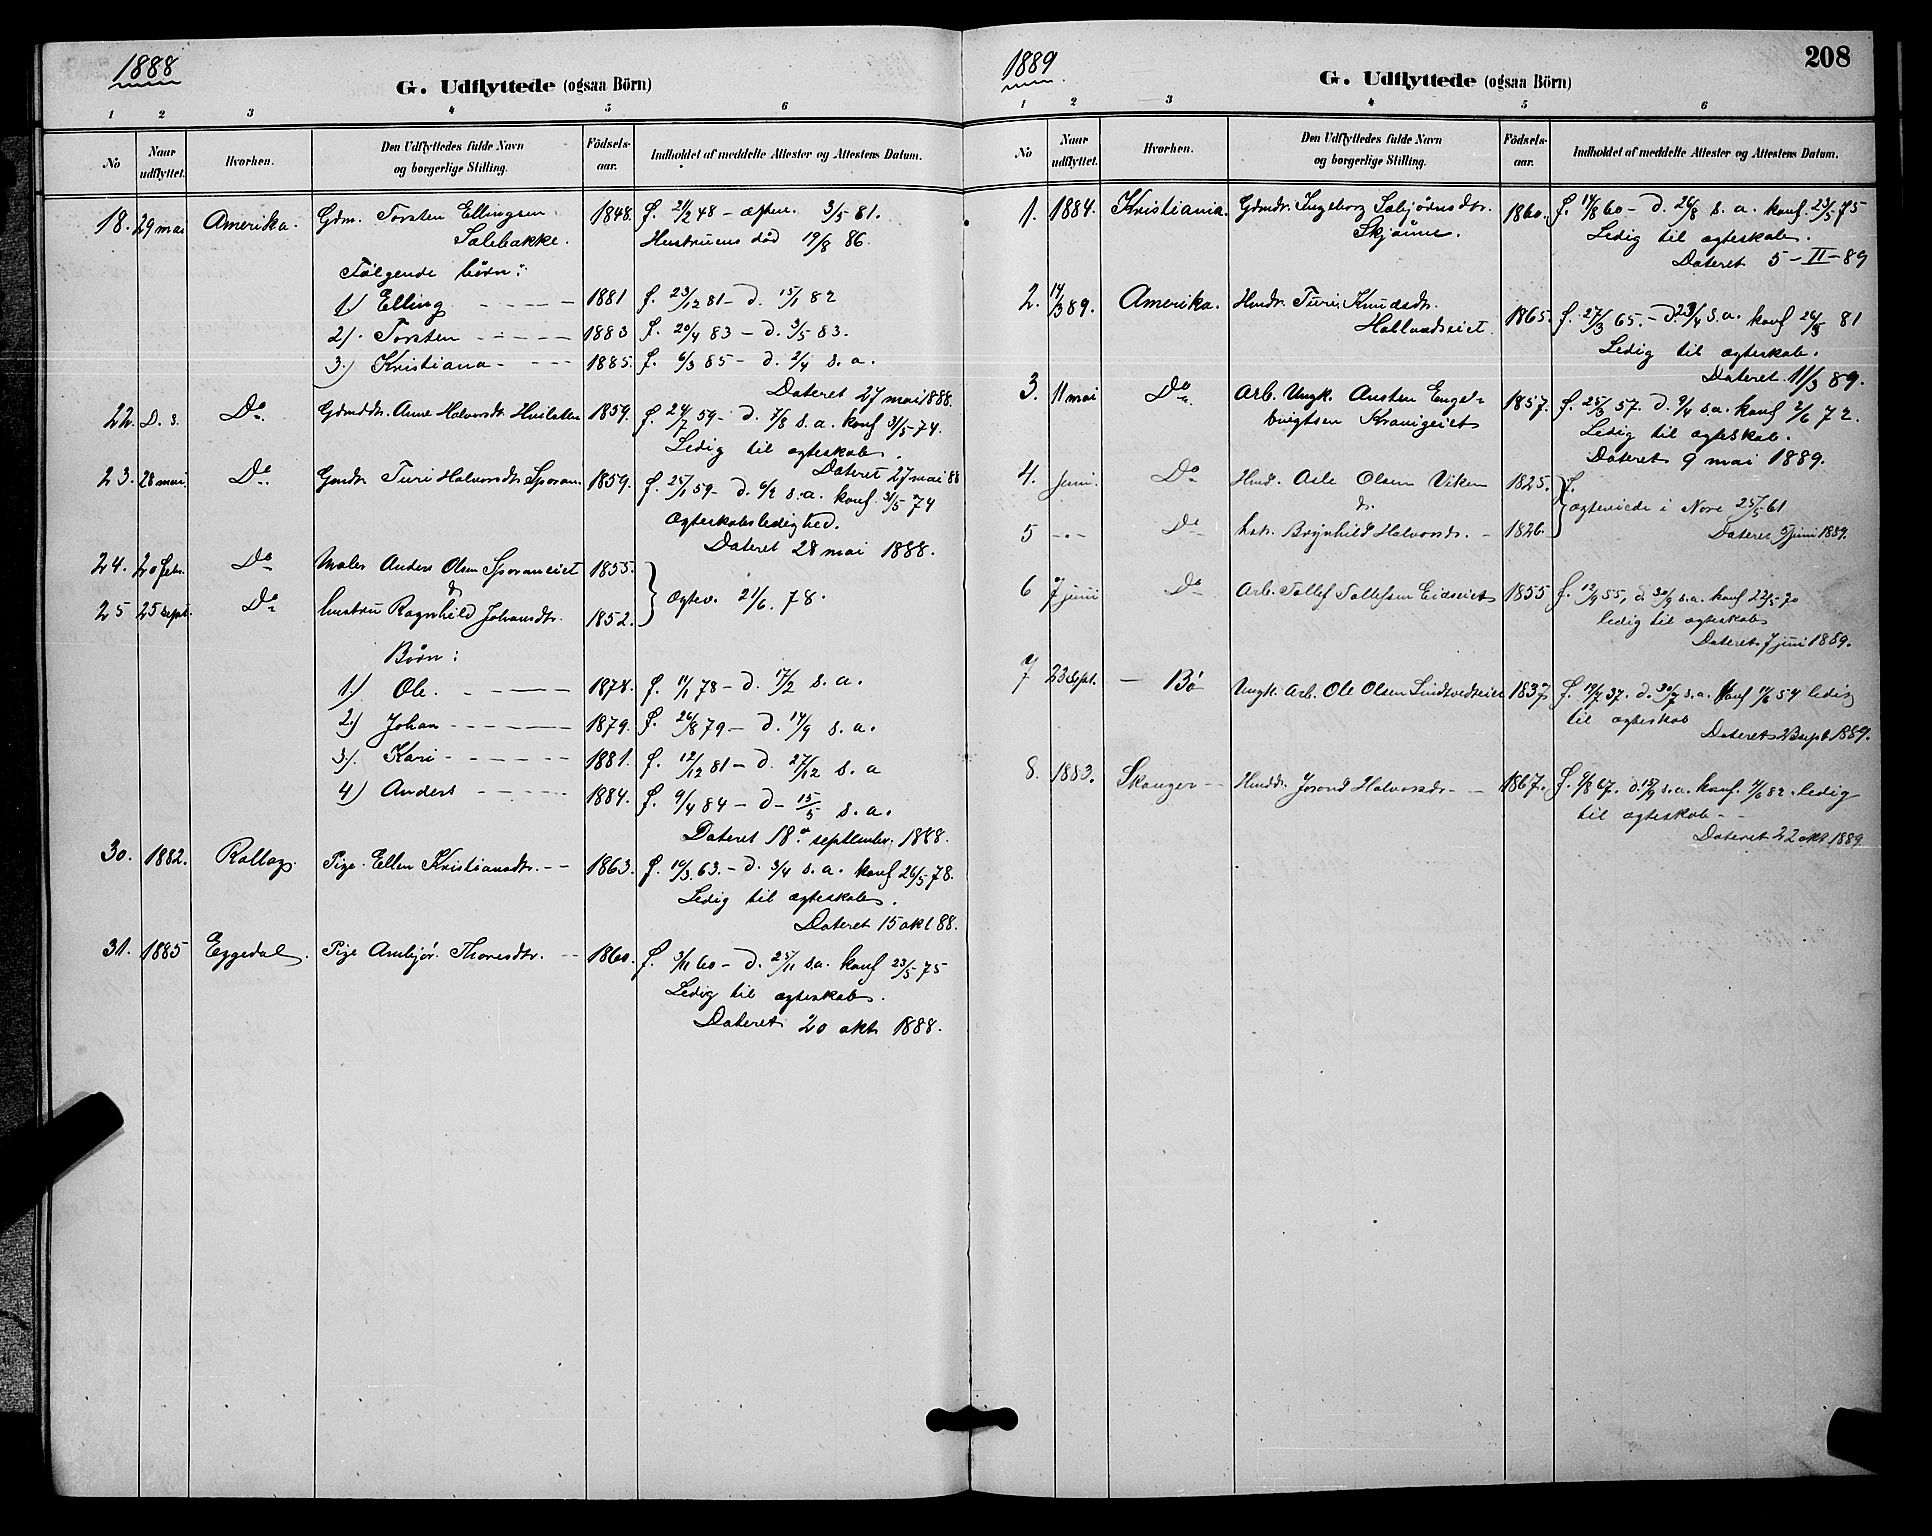 1888
G. Udflyttede (ogsaa Börn)
1 2 3 4 5 6
No
Naar udflyttet.
Hvorhen.
Den Udflyttedes fulde Navn
og borgerlige Stilling.
Födsels-
aar.
Indholdet af meddelte Attester og Attestens Datum.
18. 29 mai Amerika. Gdm. Torsten Ellingsen 1848. f. 21/2 48 – 3/5 81.
Hustruens död 19/8 86.
Følgende børn:
1) Elling 1881 f. 23/12 81 – d. 15/1 82
2) Torsten 1883 f. 20/4 83 – d. 3/5 83.
3) Kristiana 1885. f. 6/3 85 – d. 2/4 s. a.
Dateret 27 mai 1888.
22. D. s. Do Anne Halvorsdtr 1859. f. 24/7 59 – d. 7/8 s. a. konf 31/5 74.
Ledig til ægteskab.
Dateret 27 mai 88
23. 28 mai. Do Turi Halvorsdtr 1859. f. 25/1 59 – d. 6/2 s. a. konf. 31/5 74
Ægteskabsledighed.
Dateret 28 mai 1888.
24. 20 febr. Do Maler Anders Olsen Sporaneiet 1855.
ægtev. 21/6. 78.
25 25 sept. Do hustru Ragnhild Johansdtr. 1852.
Børn:
1) Ole. 1878. f. 11/1 78 – d. 17/2 s. a.
2) Johan 1879. f. 26/8 79 – d. 14/9 s. a.
3) Kari 1881. f. 12/12 81 – d. 27/12 s. a
4) Anders 1884. f. 9/4 84 – d – 15/5 s. a.
Dateret 18. september 1888.
30. 1882. Rollag. Pige Ellen Kristiansdtr. 1863. f. 10/3. 63. – d. 3/4 s. a. konf 26/5 78.
Ledig til ægteskab.
Dateret 15 okt 88.
31. 1885 Eggedal. Pige Ambjør Thoresdtr. 1860. f. 3/11 60 – d. 25/11 s. a. konf 23/5 75
Ledig til ægteskab.
Dateret 20 okt 1888.
1889
208
G. Udflyttede (ogsaa Börn)
1 2 3 4 5 6
No
Naar udflyttet.
Hvorhen.
Den Udflyttedes fulde Navn
og borgerlige Stilling.
Födsels-
aar.
Indholdet af meddelte Attester og Attestens Datum.
1. 1884. Kristiania. Gdmdr. Ingeborg Sebjørnsdtr. 1860. f. 14/8 60 – d. 26/8 s. a. konf. 23/5 75
Skjønne. Ledig til ægteskab.
Dateret 5 – II – 89
2. 14/3 89. Amerika. Husdr. Turi Knudsdtr. 1865. f. 27/3 65. – d. 23/4 s. a. konf 81
Ledig til ægteskab.
Dateret 11/3 89.
3. 11 mai Do Arb. Ungk. Austen Engel- 1857. f. 25/3 57. d. 9/4 s. a. konf 2/6 72.
brigtsen Ledig til ægteskab.
Dateret 9 mai 1889.
4. juni. Do Hmd. Asle Olsen Viken 1825. f.
ægteviede i Nore 25/5 61
5 Do hstr. Brynhild Halvorsdr. 1826. Dateret 5 juni 1889.
6 7 juni Do Arb. Tollef Tollefsen Eidseiet 1855 f. 12/9 55, d. 30/9 s. a. konf 22/5 70
ledig til ægteskab
Dateret 7 juni 1889.
7 23 sept. – Bø Ungk. Arb. Ole Olsen 1837. f. 19/7 37. d. 30/7 s. a. konf 11/6 54 ledig
til ægteskab
Dateret 23 sept 1889.
8. 1883. Skouger Husdr. Jorond Halvorsdr. 1867. f. 9/8 67. d. 15/9 s. a. konf. 11/6 82. ledig
til ægteskab
Dateret 22 okt 1889